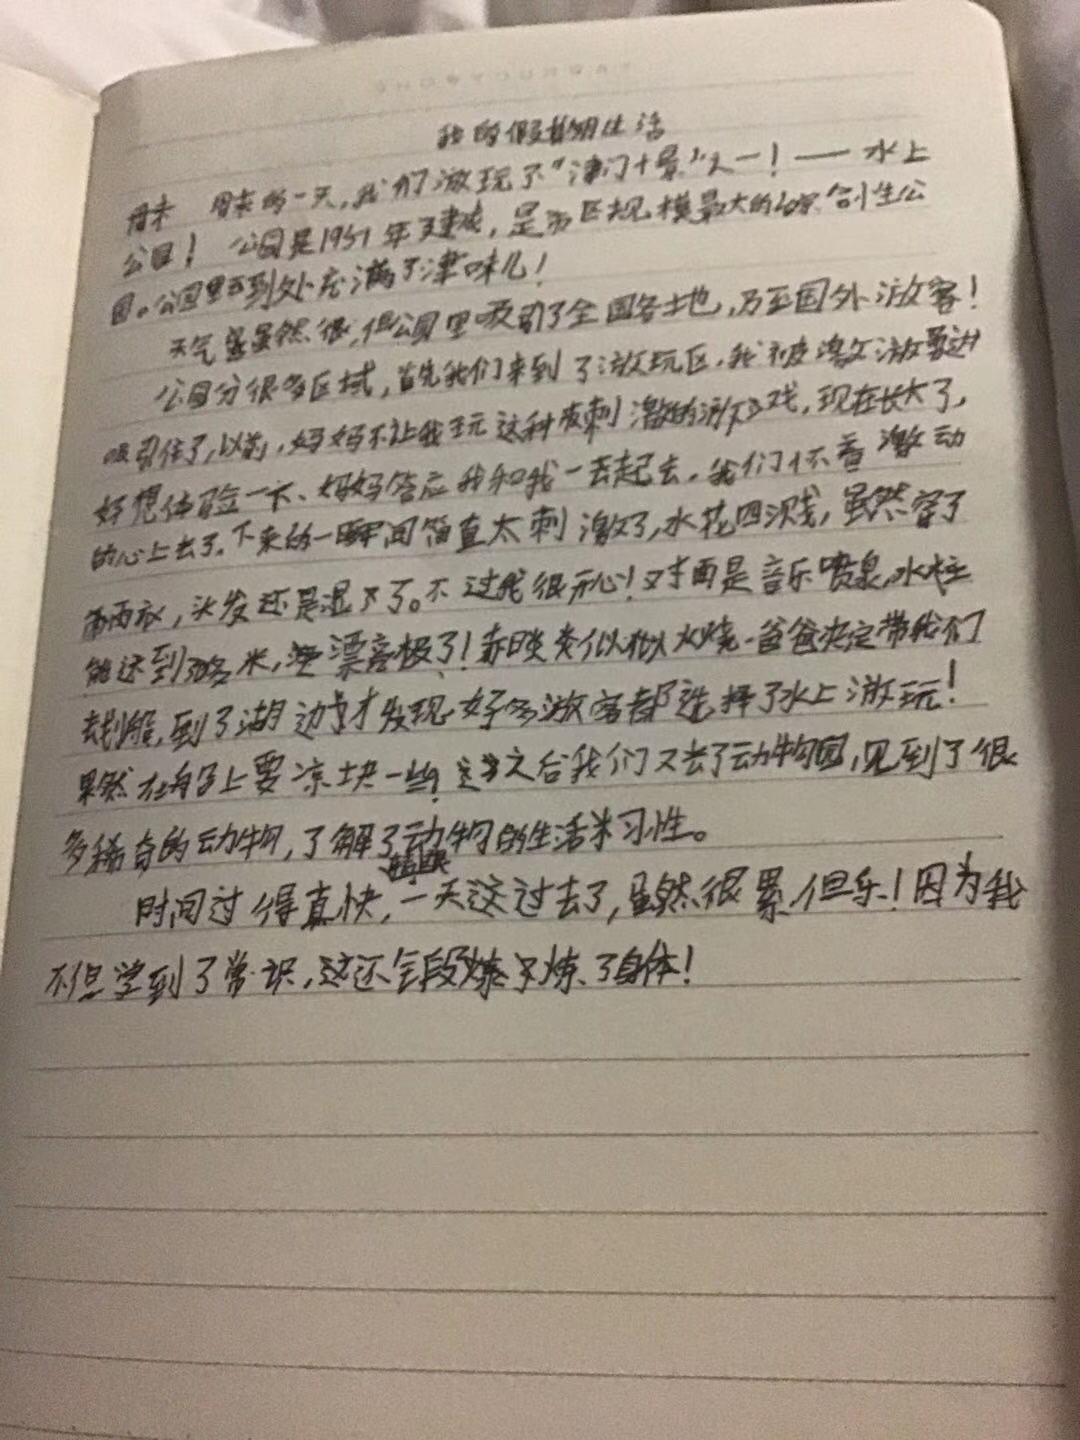 我的假期生活
周末 周末的一天,我们游玩了“津门十景”之一!—— 水上
公园! 公园是1951年建成,是市区规模最大的综合性公
园。公园里到处充满了津味儿!
天气虽然很,但公园里吸引了全国各地,乃至国外游客!
公园分很多区域,首先我们来到了游玩区.我被激流勇进
吸引住了,以前,妈妈不让我玩这种刺激的游戏,现在长大了,
好想体验一下、妈妈答应我和我一去起去.我们怀着激动
的心上去了.下来的一瞬间简直太刺激了,水花四溅,虽然穿了
雨衣,头发还是湿了。不过我很开心!对面是音乐喷泉,水柱
能达到多米,漂亮极了!赤日炎炎似火烧.爸爸决定带我们
去划船,到了湖边才发现好多游客都选择了水上游玩!
果然在船上要凉块一些!之后我们又去了动物园,见到了很
多稀奇的动物,了解了动物的生活习性。
时间过得真快,一天这过去了,虽然很累,但乐!因为我
不但学到了常识,还段炼了身体!